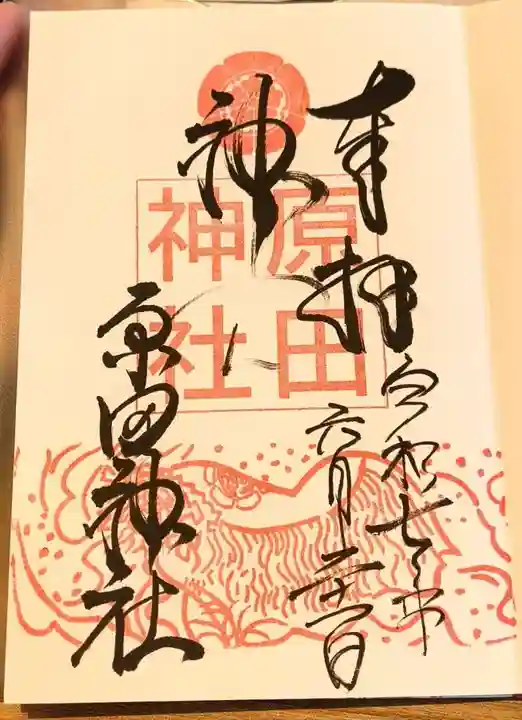 奉拝
令和七年
六月二十一日
神
原田
神社
原田神社